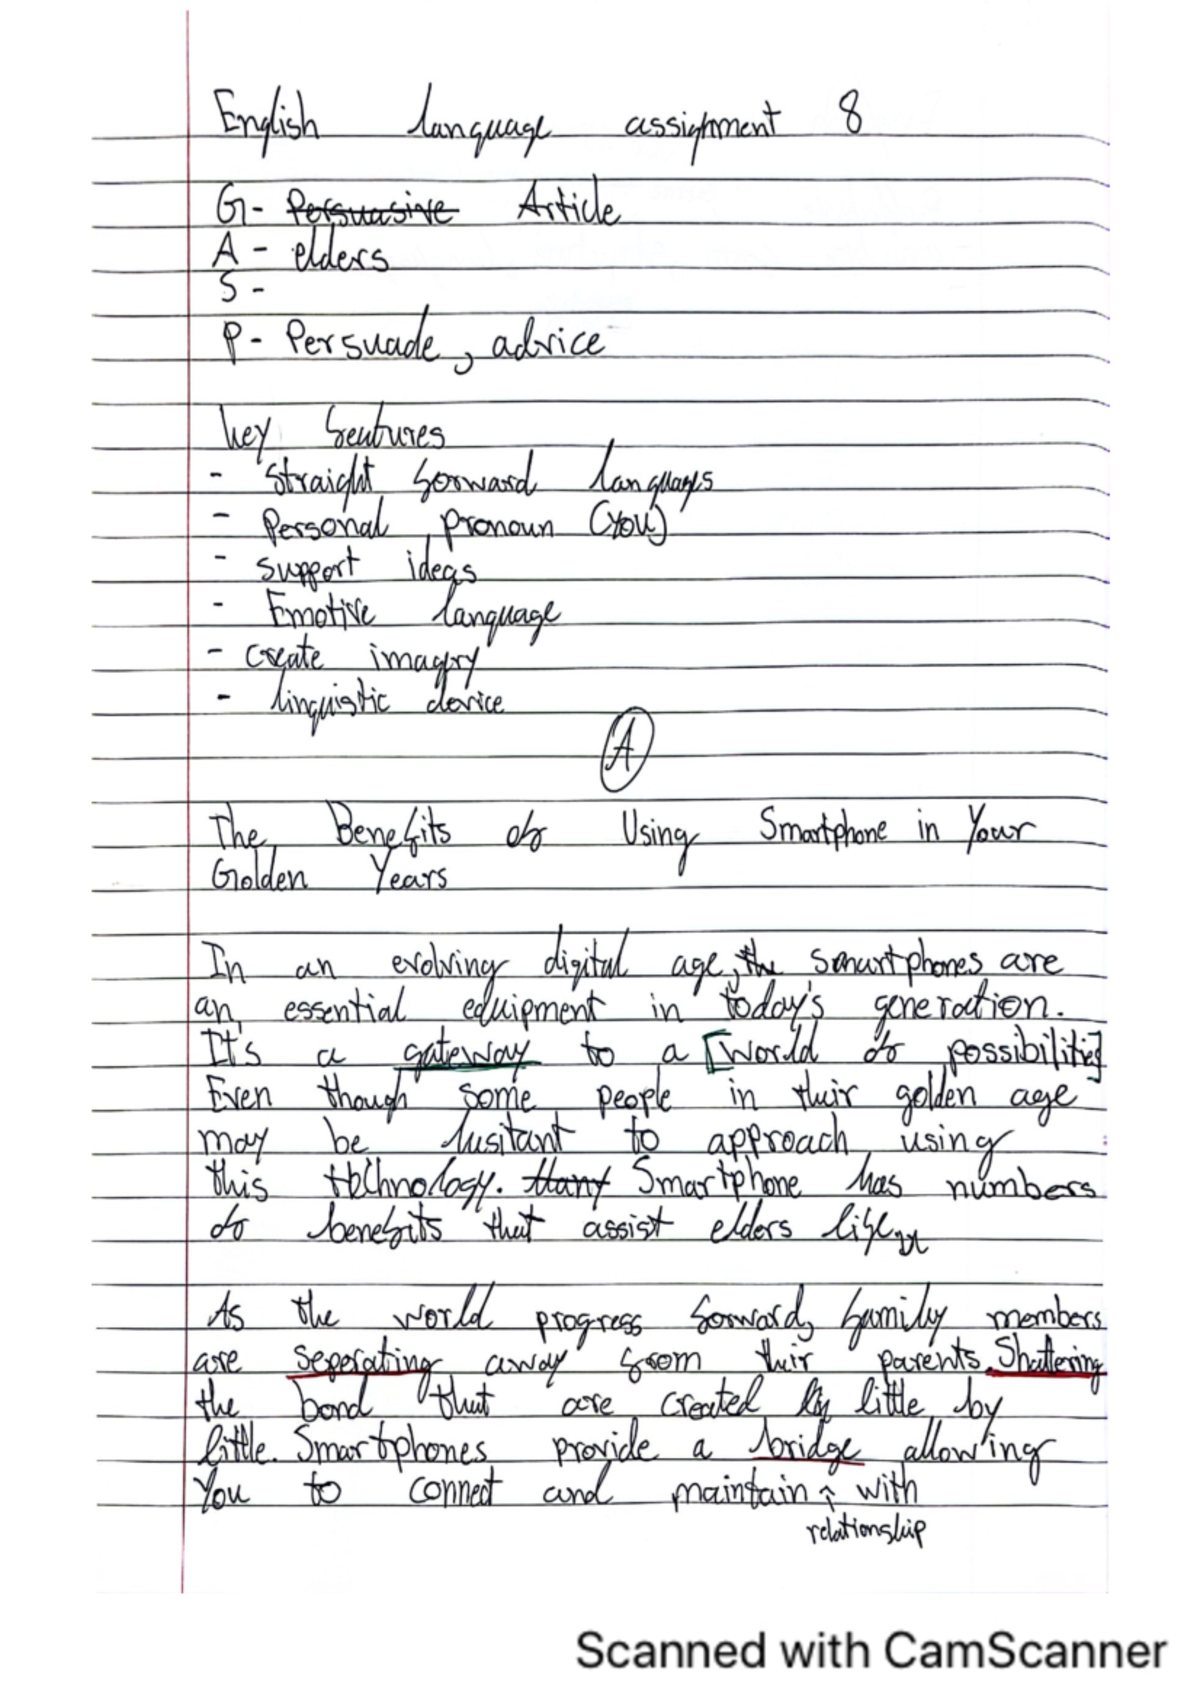 English language assignment 8
G- Persuasive Article
A - elders
S -
P- Persuade, advice
key features
- Straight forward languages
- Personal pronoun (You)
- support ideas
- Emotive language
- create imagry
- linguistic device
A
The Benefits of Using Smartphone in Your
Golden Years
In an evolving digital age, the smartphones are
an essential equipment in today's generation.
It's a gateway to a [world of possibilities]
Even though some people in their golden age
may be husitant to approach using
this technology. Many Smartphone has numbers
of benefits that assist elders life.
As the world progress forward, family members
are seperating away from their parents. Shattering
the bond that are created by little by
little. Smartphones provide a bridge allowing
You to connect and maintain ↑ with
relationship
Scanned with CamScanner